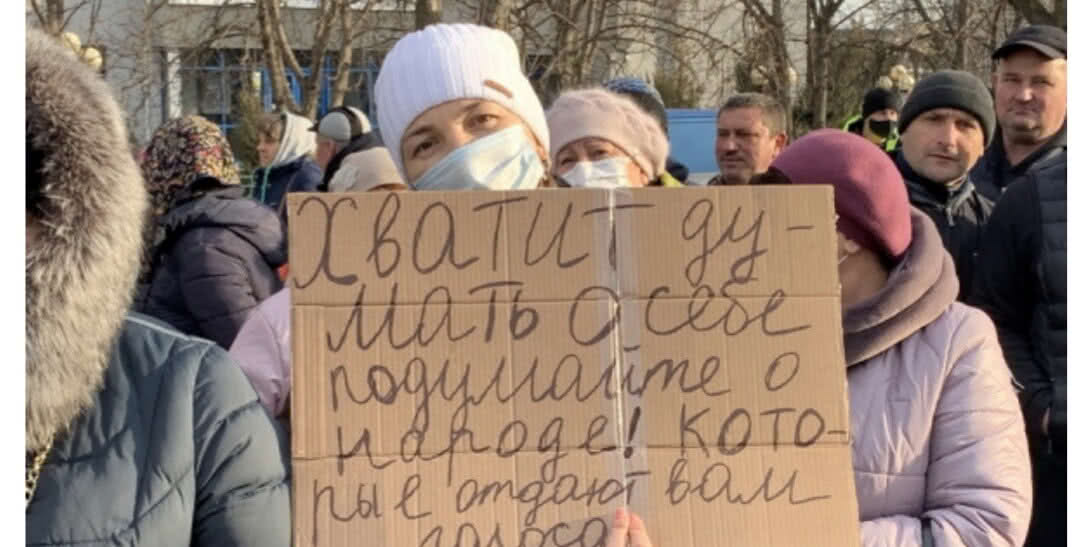 Хватит ду-
мать о себе
подумайте о
народе! Кото-
рые отдают вам
голоса